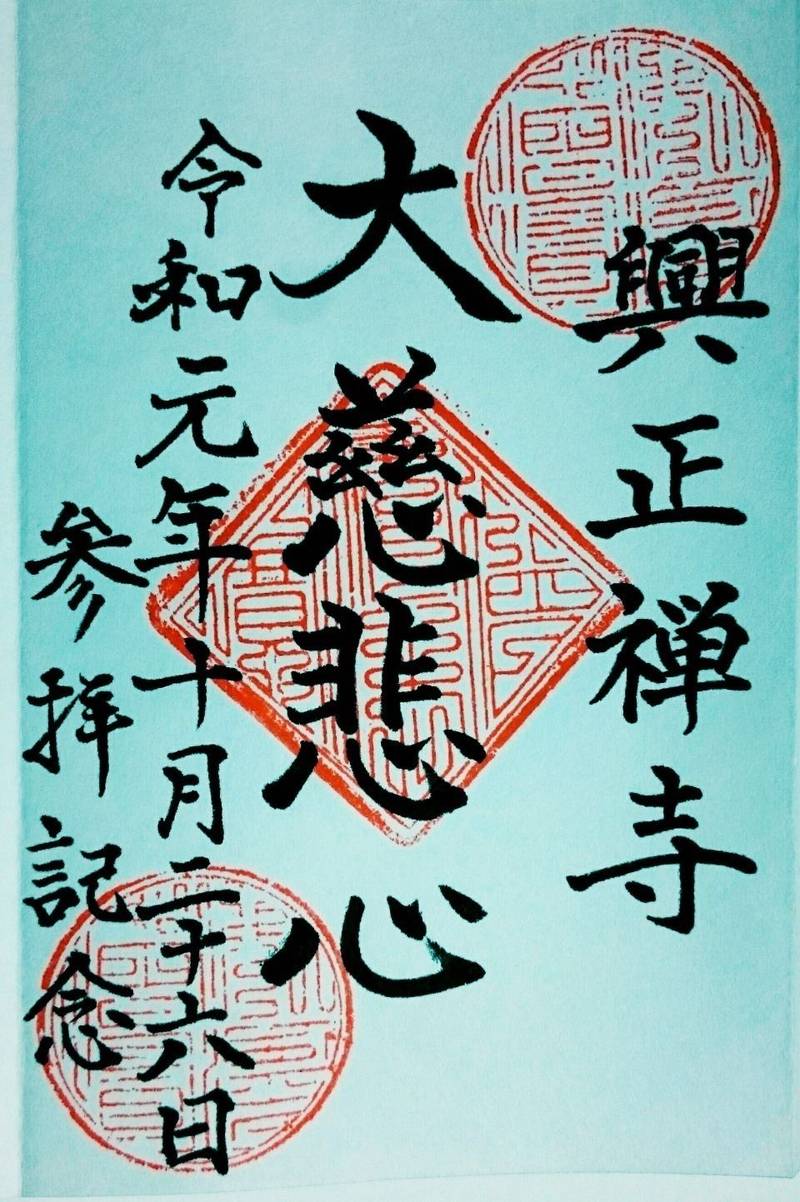 興正禅寺
大慈悲心
令和元年十月二十六日
参拝記念